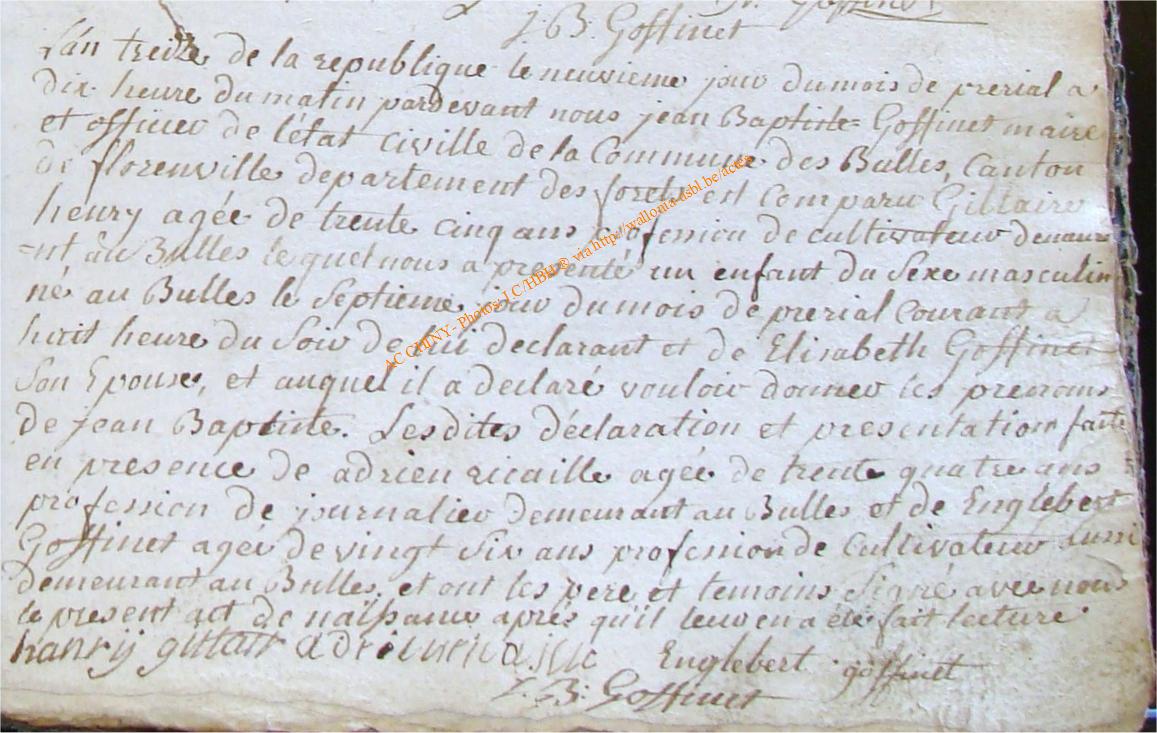 J. B. Goffinet
L'an treize de la republique le neuvieme jour du mois de prerial a
dix heure du matin pardevant nous jean Baptiste= Goffinet maire
et officier de l'état civille de la Commune des Bulles, Canton
de florenville departement des forets est comparu Gillaire
henry agée de trente cinq ans profession de cultivateur demeura
=nt au Bulles lequel nous a presenté un enfant du Sexe masculin
né au Bulles le Septieme jour du mois de prerial Courant a
huit heure du Soir de lui declarant et de Elisabeth Goffinet
Son Epouse, et auquel il a declaré vouloir donner les prenoms
de jean Baptiste. Lesdites déclaration et presentation faite
en presence de adrien ricaille agée de trente quatre ans
profession de journalier demeurant au Bulles et de Englebert
Goffinet agée de vingt Six ans profession de Cultivateur aussi
demeurant au Bulles, et ont les pere et temoins Signé avec nous
le present act de naissance aprés qu'il leur en a été fait lecture
hanrij gillair adrien
Englebert goffinet
J. B. Goffinet
AC CHINY - Photos J.C/HBH © via http://wallonia-asbl.be/actes